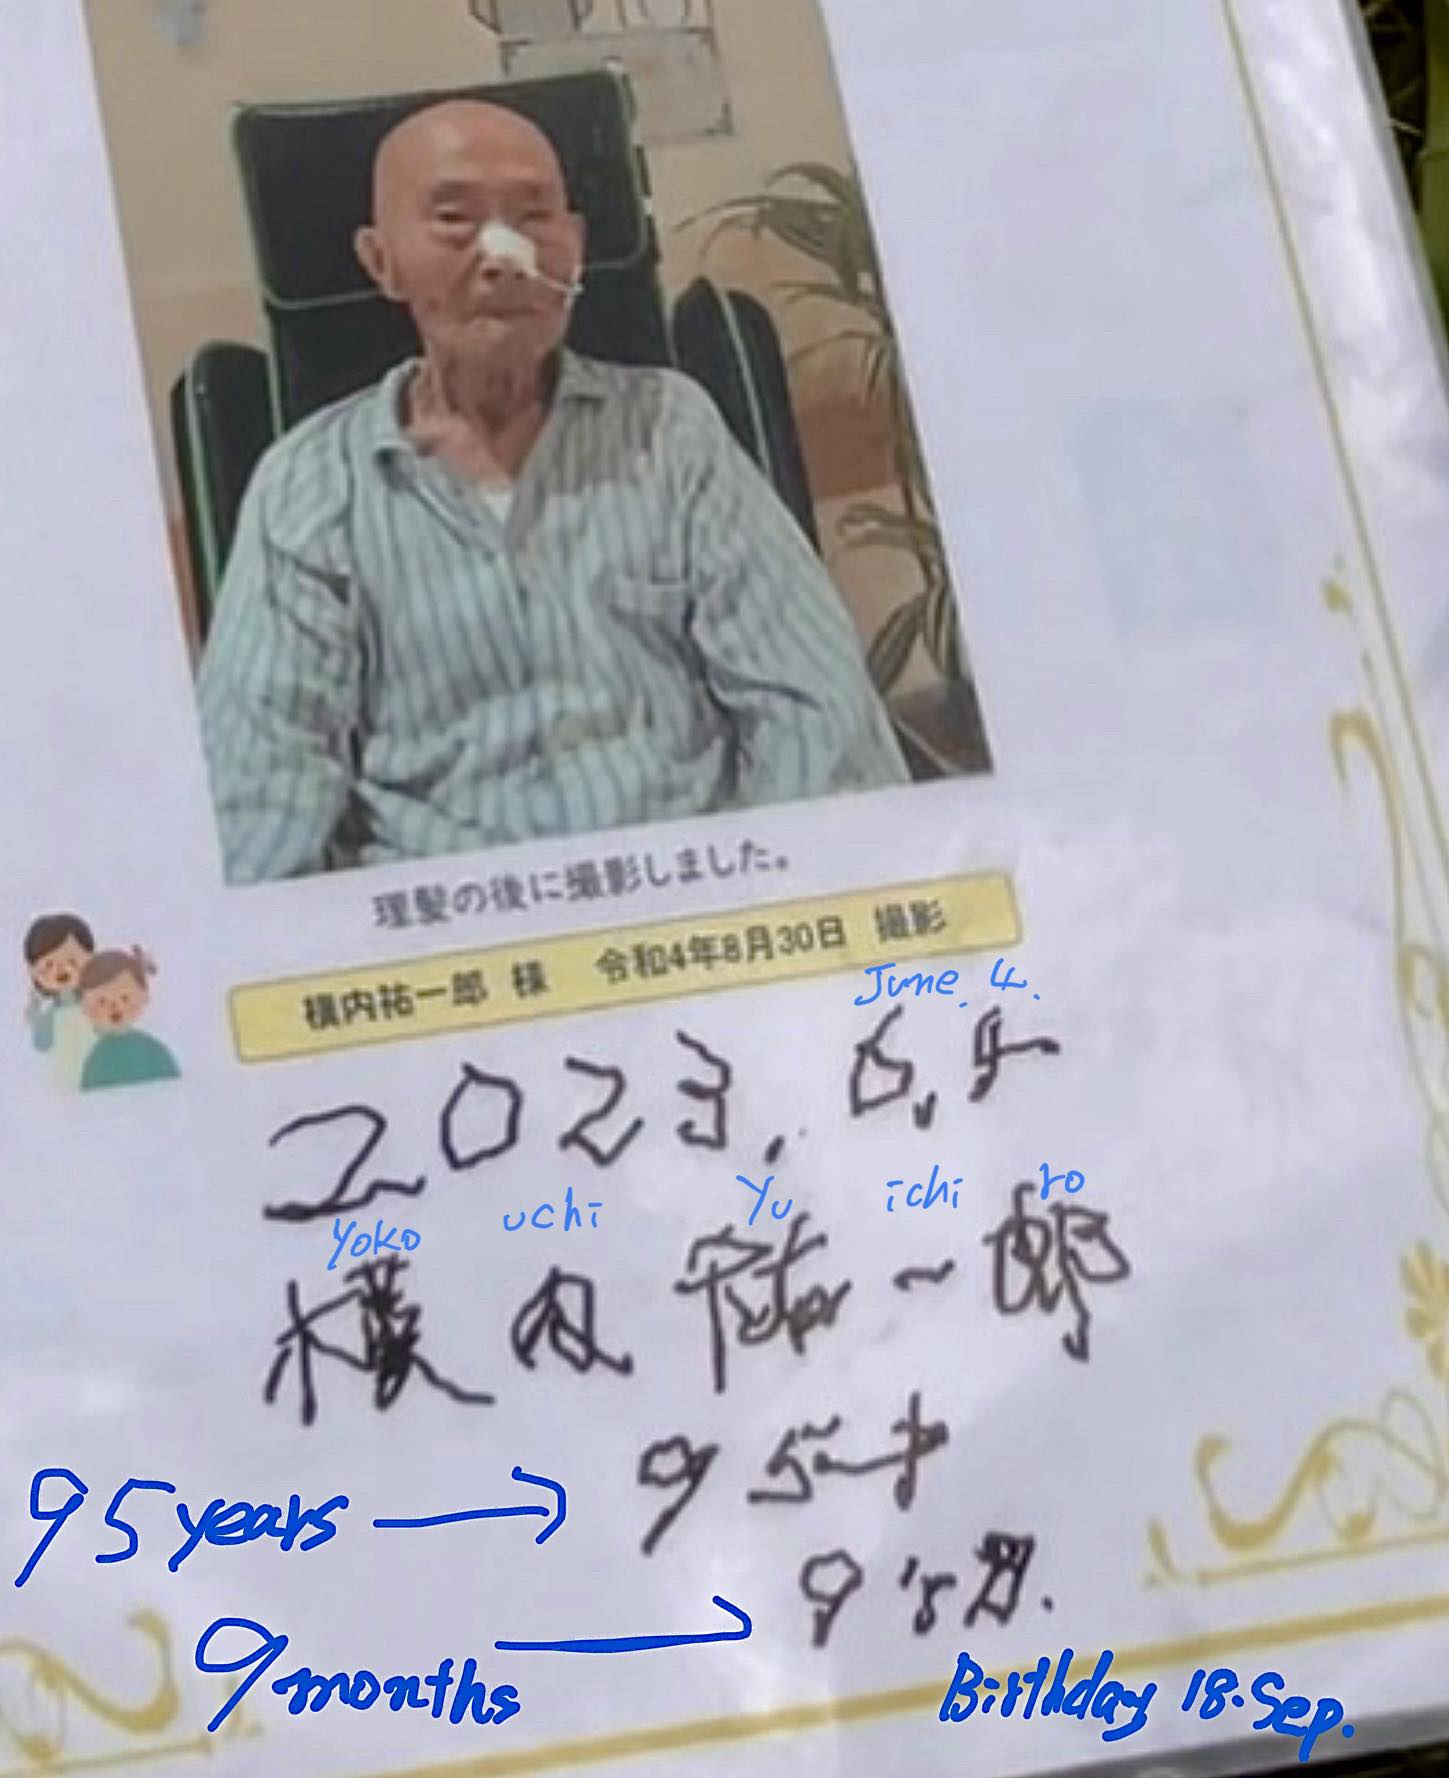 理髪の後に撮影しました。
横内祐一郎 様 令和4年8月30日 撮影
June. 4.
2023. 6. 4
Yoko uchi Yu ichi ro
横内祐一郎
95years → 95才
9months → 9ヶ月.
Birthday 18. Sep.